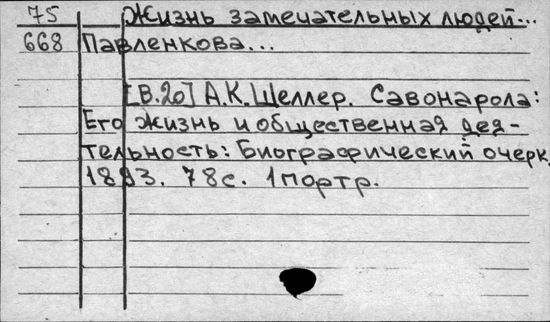 75 Жизнь замечательных людей...
668 Павленкова...
[В.20] А.К. Шеллер. Савонарола:
Его жизнь и общественная дея-
тельность: Биографический очерк.
1893. 78с. 1 портр.